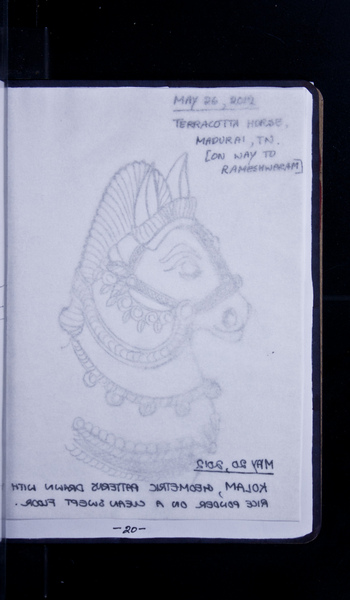 MAY 26, 2012
TERRACOTTA HORSE,
MADURAI, TN.
[ON WAY TO
RAMESHWARAM]
MAY 20, 2012
KOLAM, GEOMETRIC PATTERNS DRAWN WITH
RICE POWDER ON A CLEAN SWEPT FLOOR.
-20-